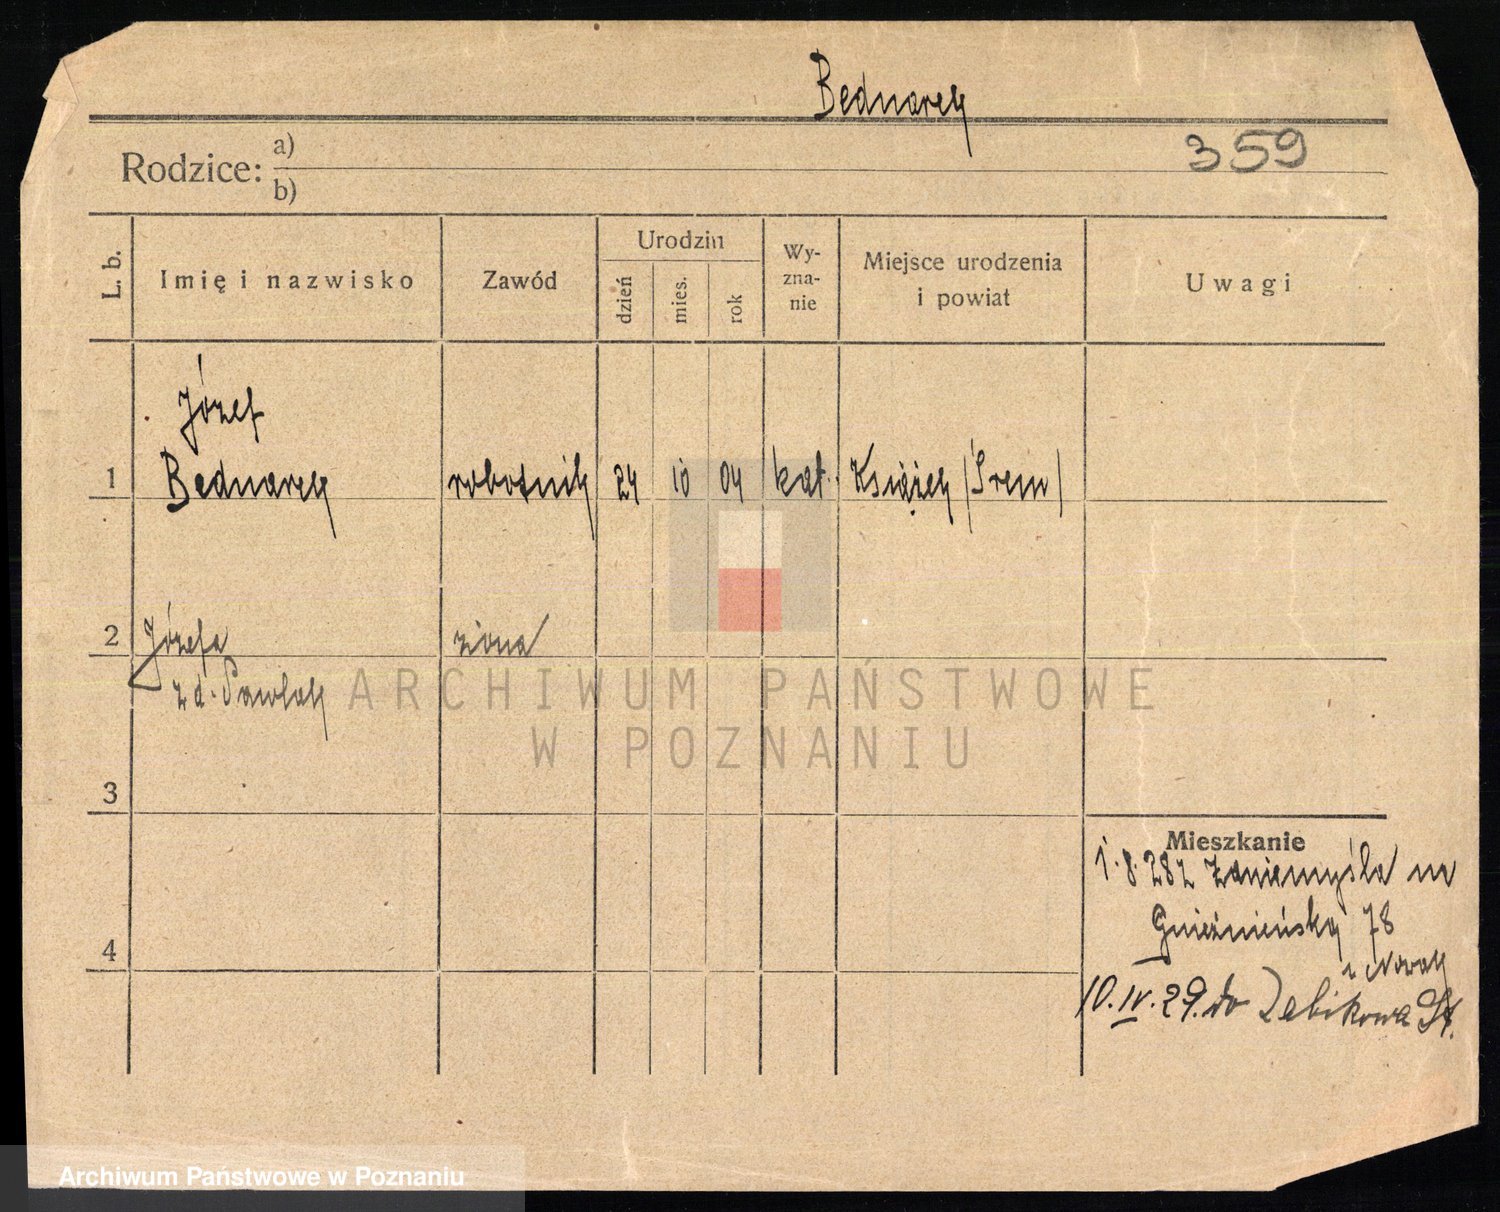 Bednarek
359
Rodzice: a)
b)
L. b.
Imię i nazwisko
Zawód
Urodzin
dzień
mies.
rok
Wy-
zna-
nie
Miejsce urodzenia
i powiat
Uwagi
Józef
1 Bednarek robotnik 24 10 04 kat. Książek (Śrem)
2 Józefa żona
zd. Pawlak
ARCHIWUM PAŃSTWOWE
W POZNANIU
3
Mieszkanie
1.8.28 z Zaniemyśla na
Gnieźnieńską 78
4
Nowak
10.IV.29. do Żabikowa
Archiwum Państwowe w Poznaniu